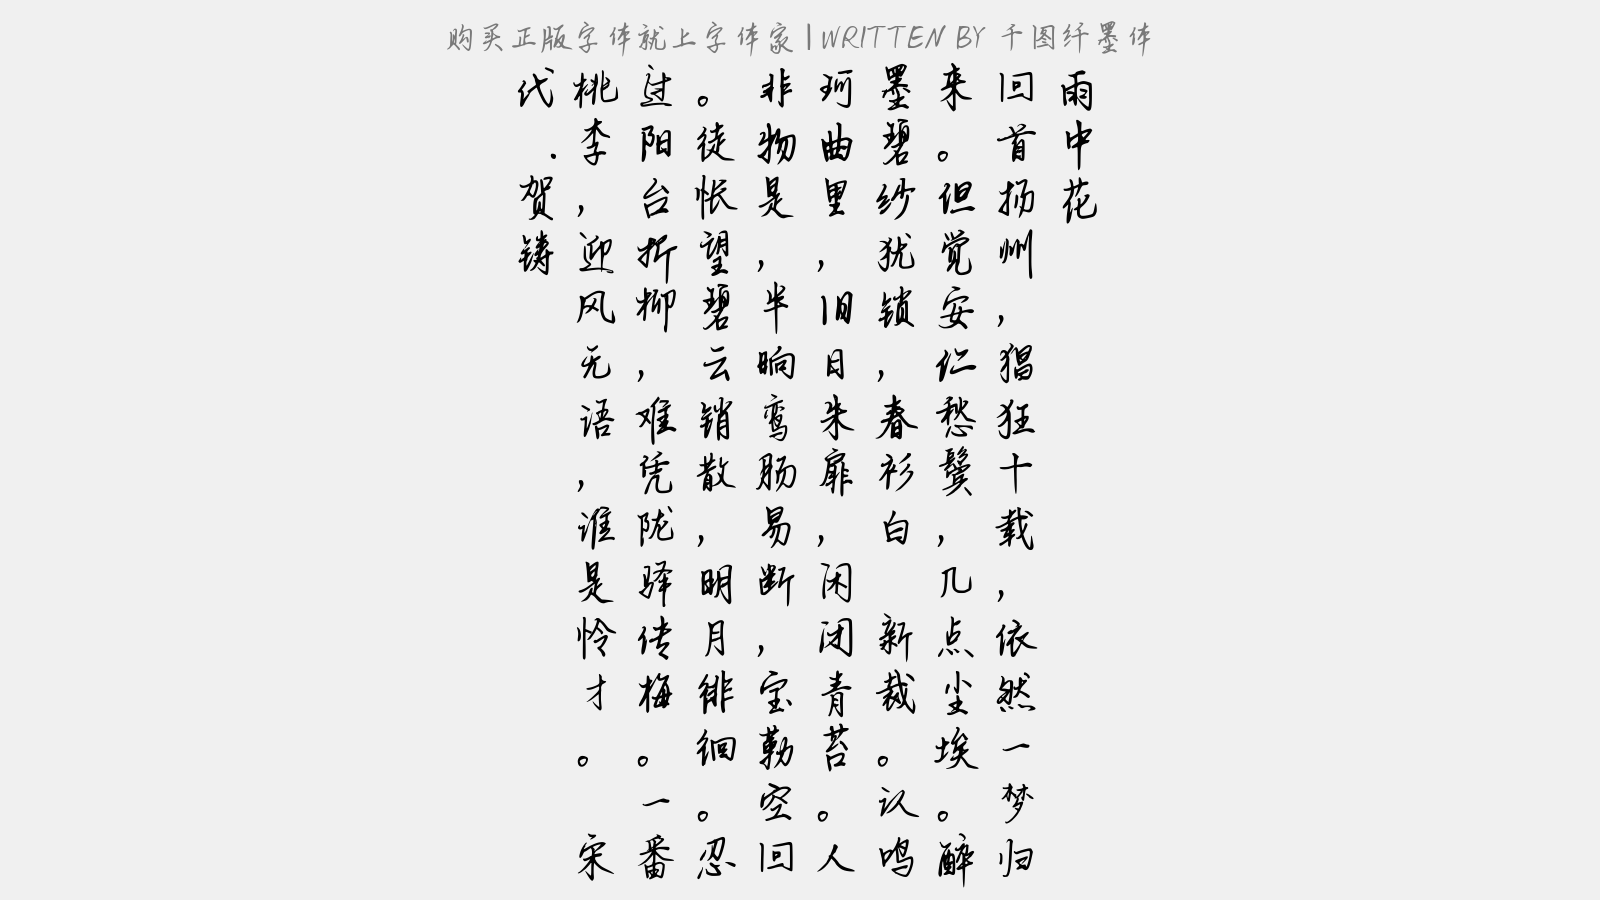 购买正版字体就上字体家 | WRITTEN BY 千图纤墨体
雨中花
回首扬州，猖狂十载，依然一梦归
来。但觉安仁愁鬓，几点尘埃。醉
墨碧纱犹锁，春衫白 新裁。认鸣
珂曲里，旧日朱扉，闲闭青苔。人
非物是，半晌鸾肠易断，宝勒空回
。徒怅望碧云销散，明月徘徊。忍
过阳台折柳，难凭陇驿传梅。一番
桃李，迎风无语，谁是怜才。 宋
代.贺铸